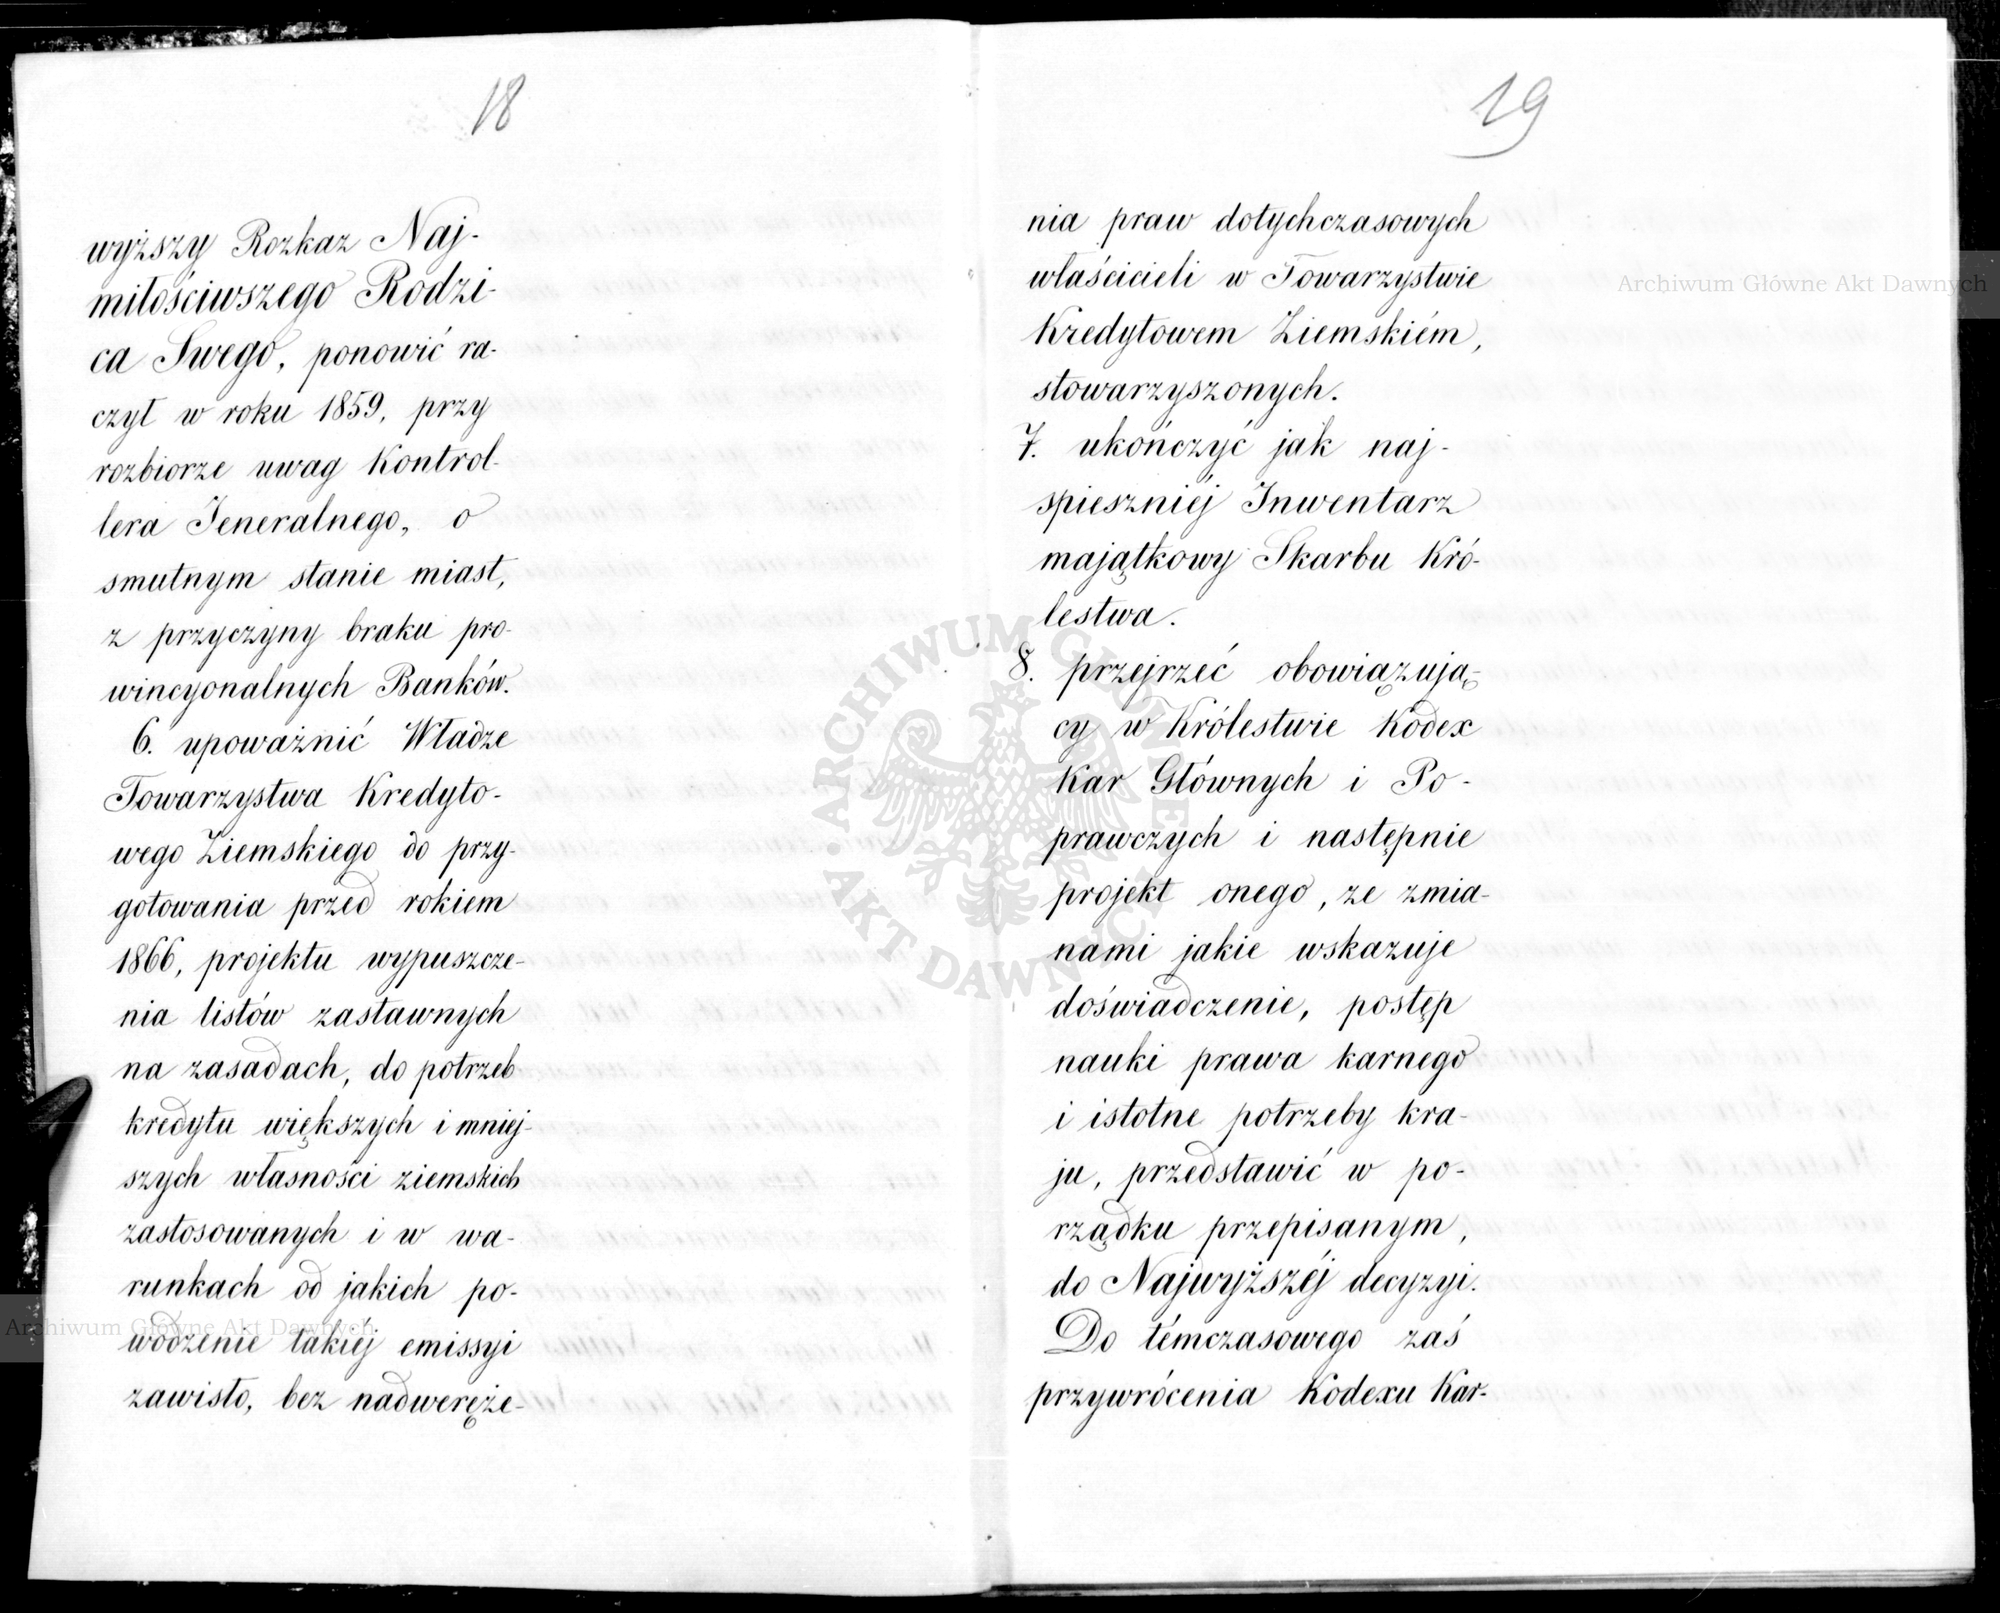 18
wyższy Rozkaz Naj-
miłościwszego Rodzi-
ca Swego, ponowić ra-
czył w roku 1859, przy
rozbiorze uwag Kontrol-
lera Jeneralnego, o
smutnym stanie miast,
z przyczyny braku pro-
wincyonalnych Banków.
6. upoważnić Władze
Towarzystwa Kredyto-
wego Ziemskiego do przy-
gotowania przed rokiem
1866, projektu wypuszcze-
nia listów zastawnych
na zasadach, do potrzeb
kredytu większych i mniej-
szych własności ziemskich
zastosowanych i w wa-
runkach od jakich po-
wodzenie takiéj emissyi
zawisło, bez nadweręże-
19
nia praw dotychczasowych
właścicieli w Towarzystwie
Kredytowem Ziemskiém,
stowarzyszonych.
7. ukończyć jak naj-
spieszniéj Inwentarz
majątkowy Skarbu Kró-
lestwa.
8. przejrzeć obowiązują-
cy w Królestwie Kodex
Kar Głównych i Po-
prawczych i następnie
projekt onego, ze zmia-
nami jakie wskazuje
doświadczenie, postęp
nauki prawa karnego
i istotne potrzeby kra-
ju, przedstawić w po-
rządku przepisanym,
do Najwyższéj decyzyi.
Do témczasowego zaś
przywrócenia Kodexu Kar-
Archiwum Główne Akt Dawnych
ARCHIWUM GŁÓWNE AKT DAWNYCH
Archiwum Główne Akt Dawnych